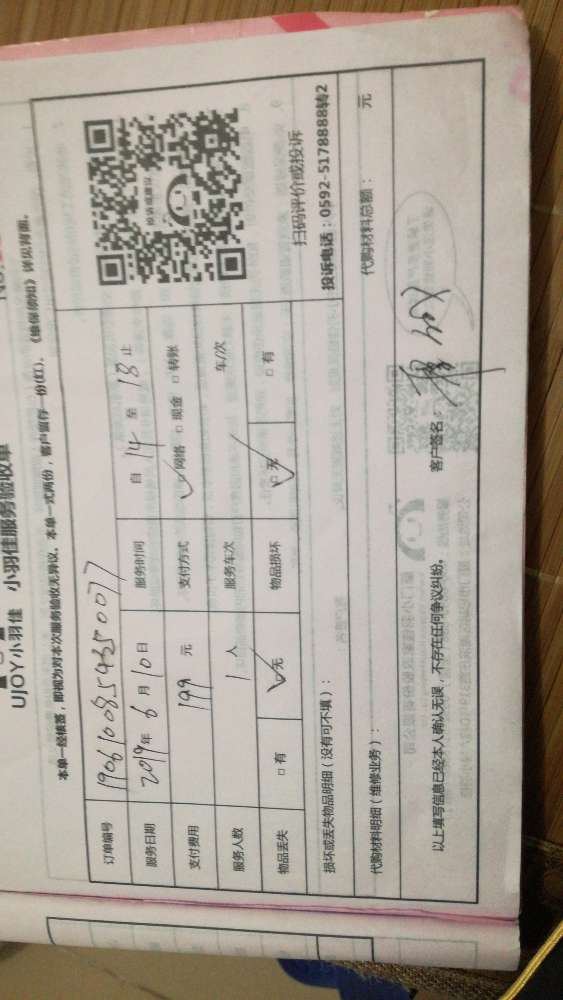 UJOY小羽佳 小羽佳服务验收单
本单一经核签，即视为对本次服务验收无异议。本单一式两份，客户留存一份(红)。《维保须知》详见背面。
订单编号 1906100854350077
服务日期 2019年 6 月 10 日 服务时间 自 14 至 18 止
支付费用 199 元 支付方式 ✓网络 □ 现金 □ 转账
服务人数 1 人 服务车次 车/次
物品丢失 □ 有 ✓无 物品损坏 ✓无 □ 有
投诉或建议
扫码评价或投诉
投诉电话：0592-5178888转2
损坏或丢失物品明细（没有可不填）：
代购材料明细（维修业务）： 代购材料总额： 元
以上填写信息已经本人确认无误，不存在任何争议纠纷。 客户签名：